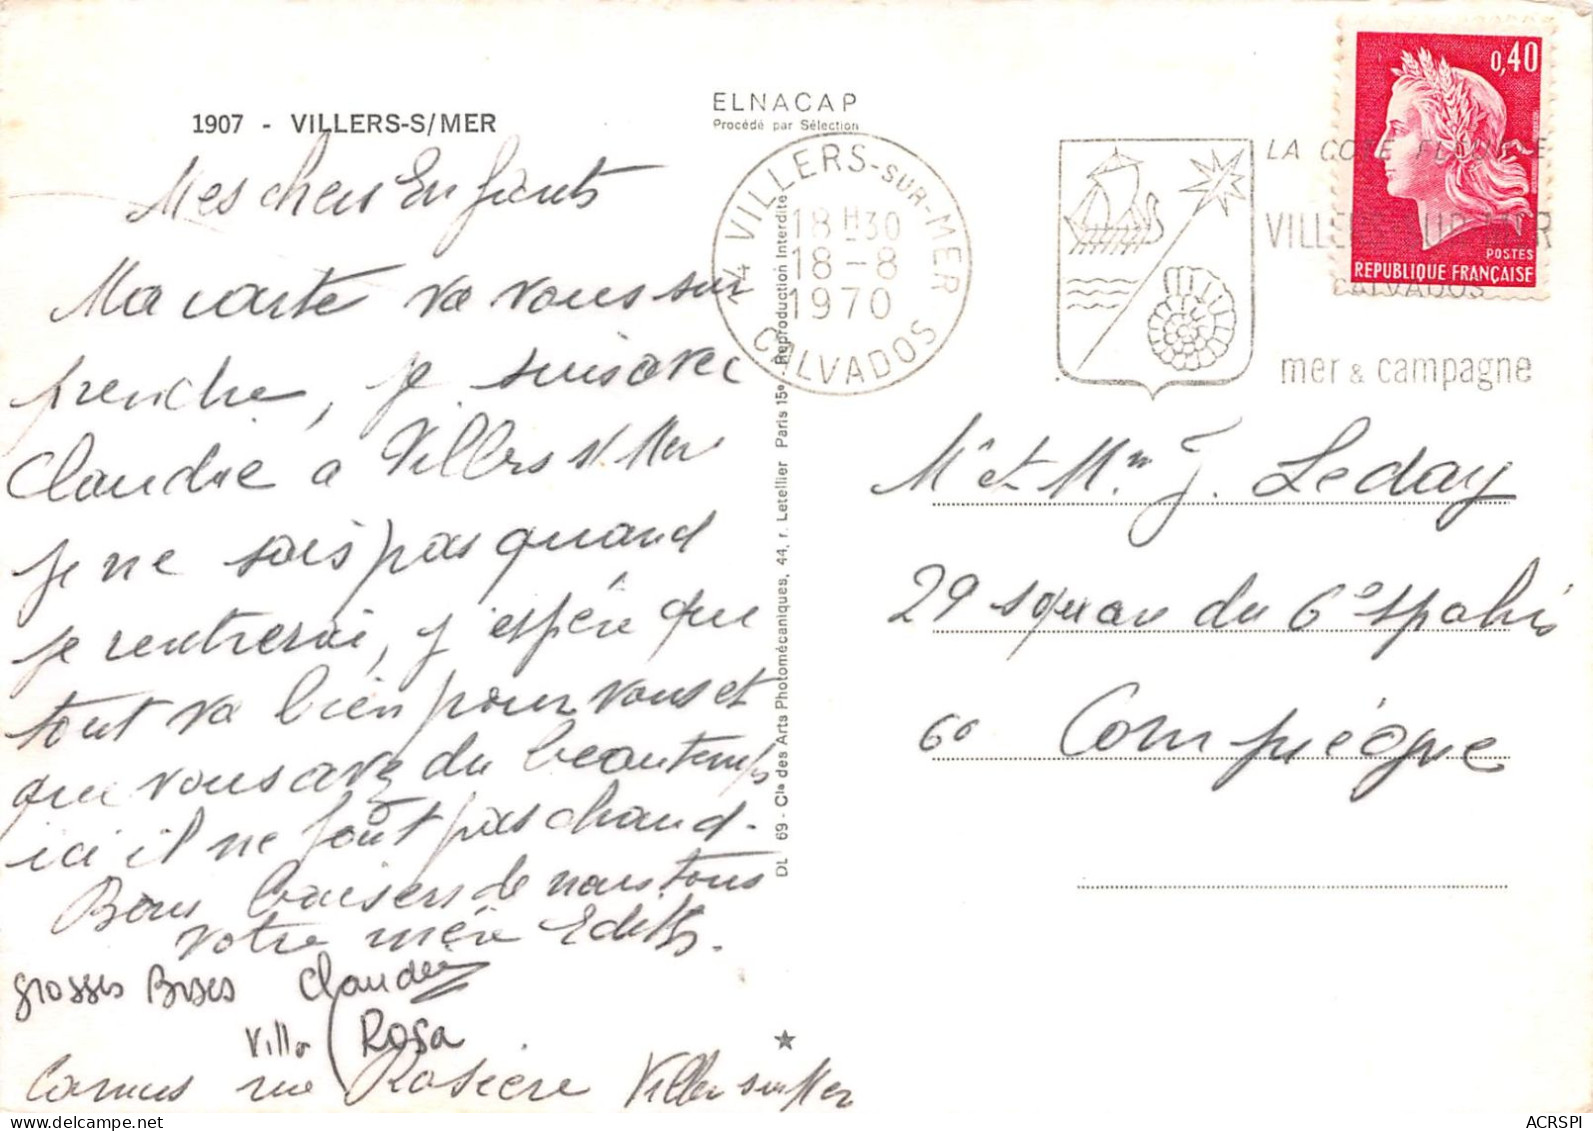 1907 - VILLERS-S/MER
ELNACAP
Procédé par Sélection
Mes chers Enfants
Ma carte va vous sur
prendre, je suis avec
Claudie a Villers s/ Mer
je ne sais pas quand
je rentrerai, j'espère que
tout va bien pour vous et
que vous avez du beau temps
ici il ne fait pas chaud.
Bons baisers de nous tous
votre mère Edith.
grosses Bises Claudie
Villa Rosa
Camus rue Rosière Villers sur Mer
DL 69 - Cie des Arts Photomécaniques, 44, r. Letellier Paris 15e - Reproduction Interdite
14 VILLERS-SUR-MER
18H30
18-8
1970
CALVADOS
LA COTE FLEURIE
VILLERS SUR MER
CALVADOS
mer & campagne
0,40
POSTES
REPUBLIQUE FRANÇAISE
Mr et Mme J. Leday
29 squar du 6e spahis
60 Compiégne
ACRSPI